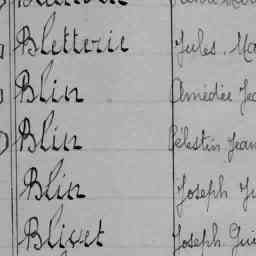 Bletterie Jules. Ma
Blin Amédée Je
Blin Célestin Jean
Blin Joseph Ju
Blivet Joseph Gui